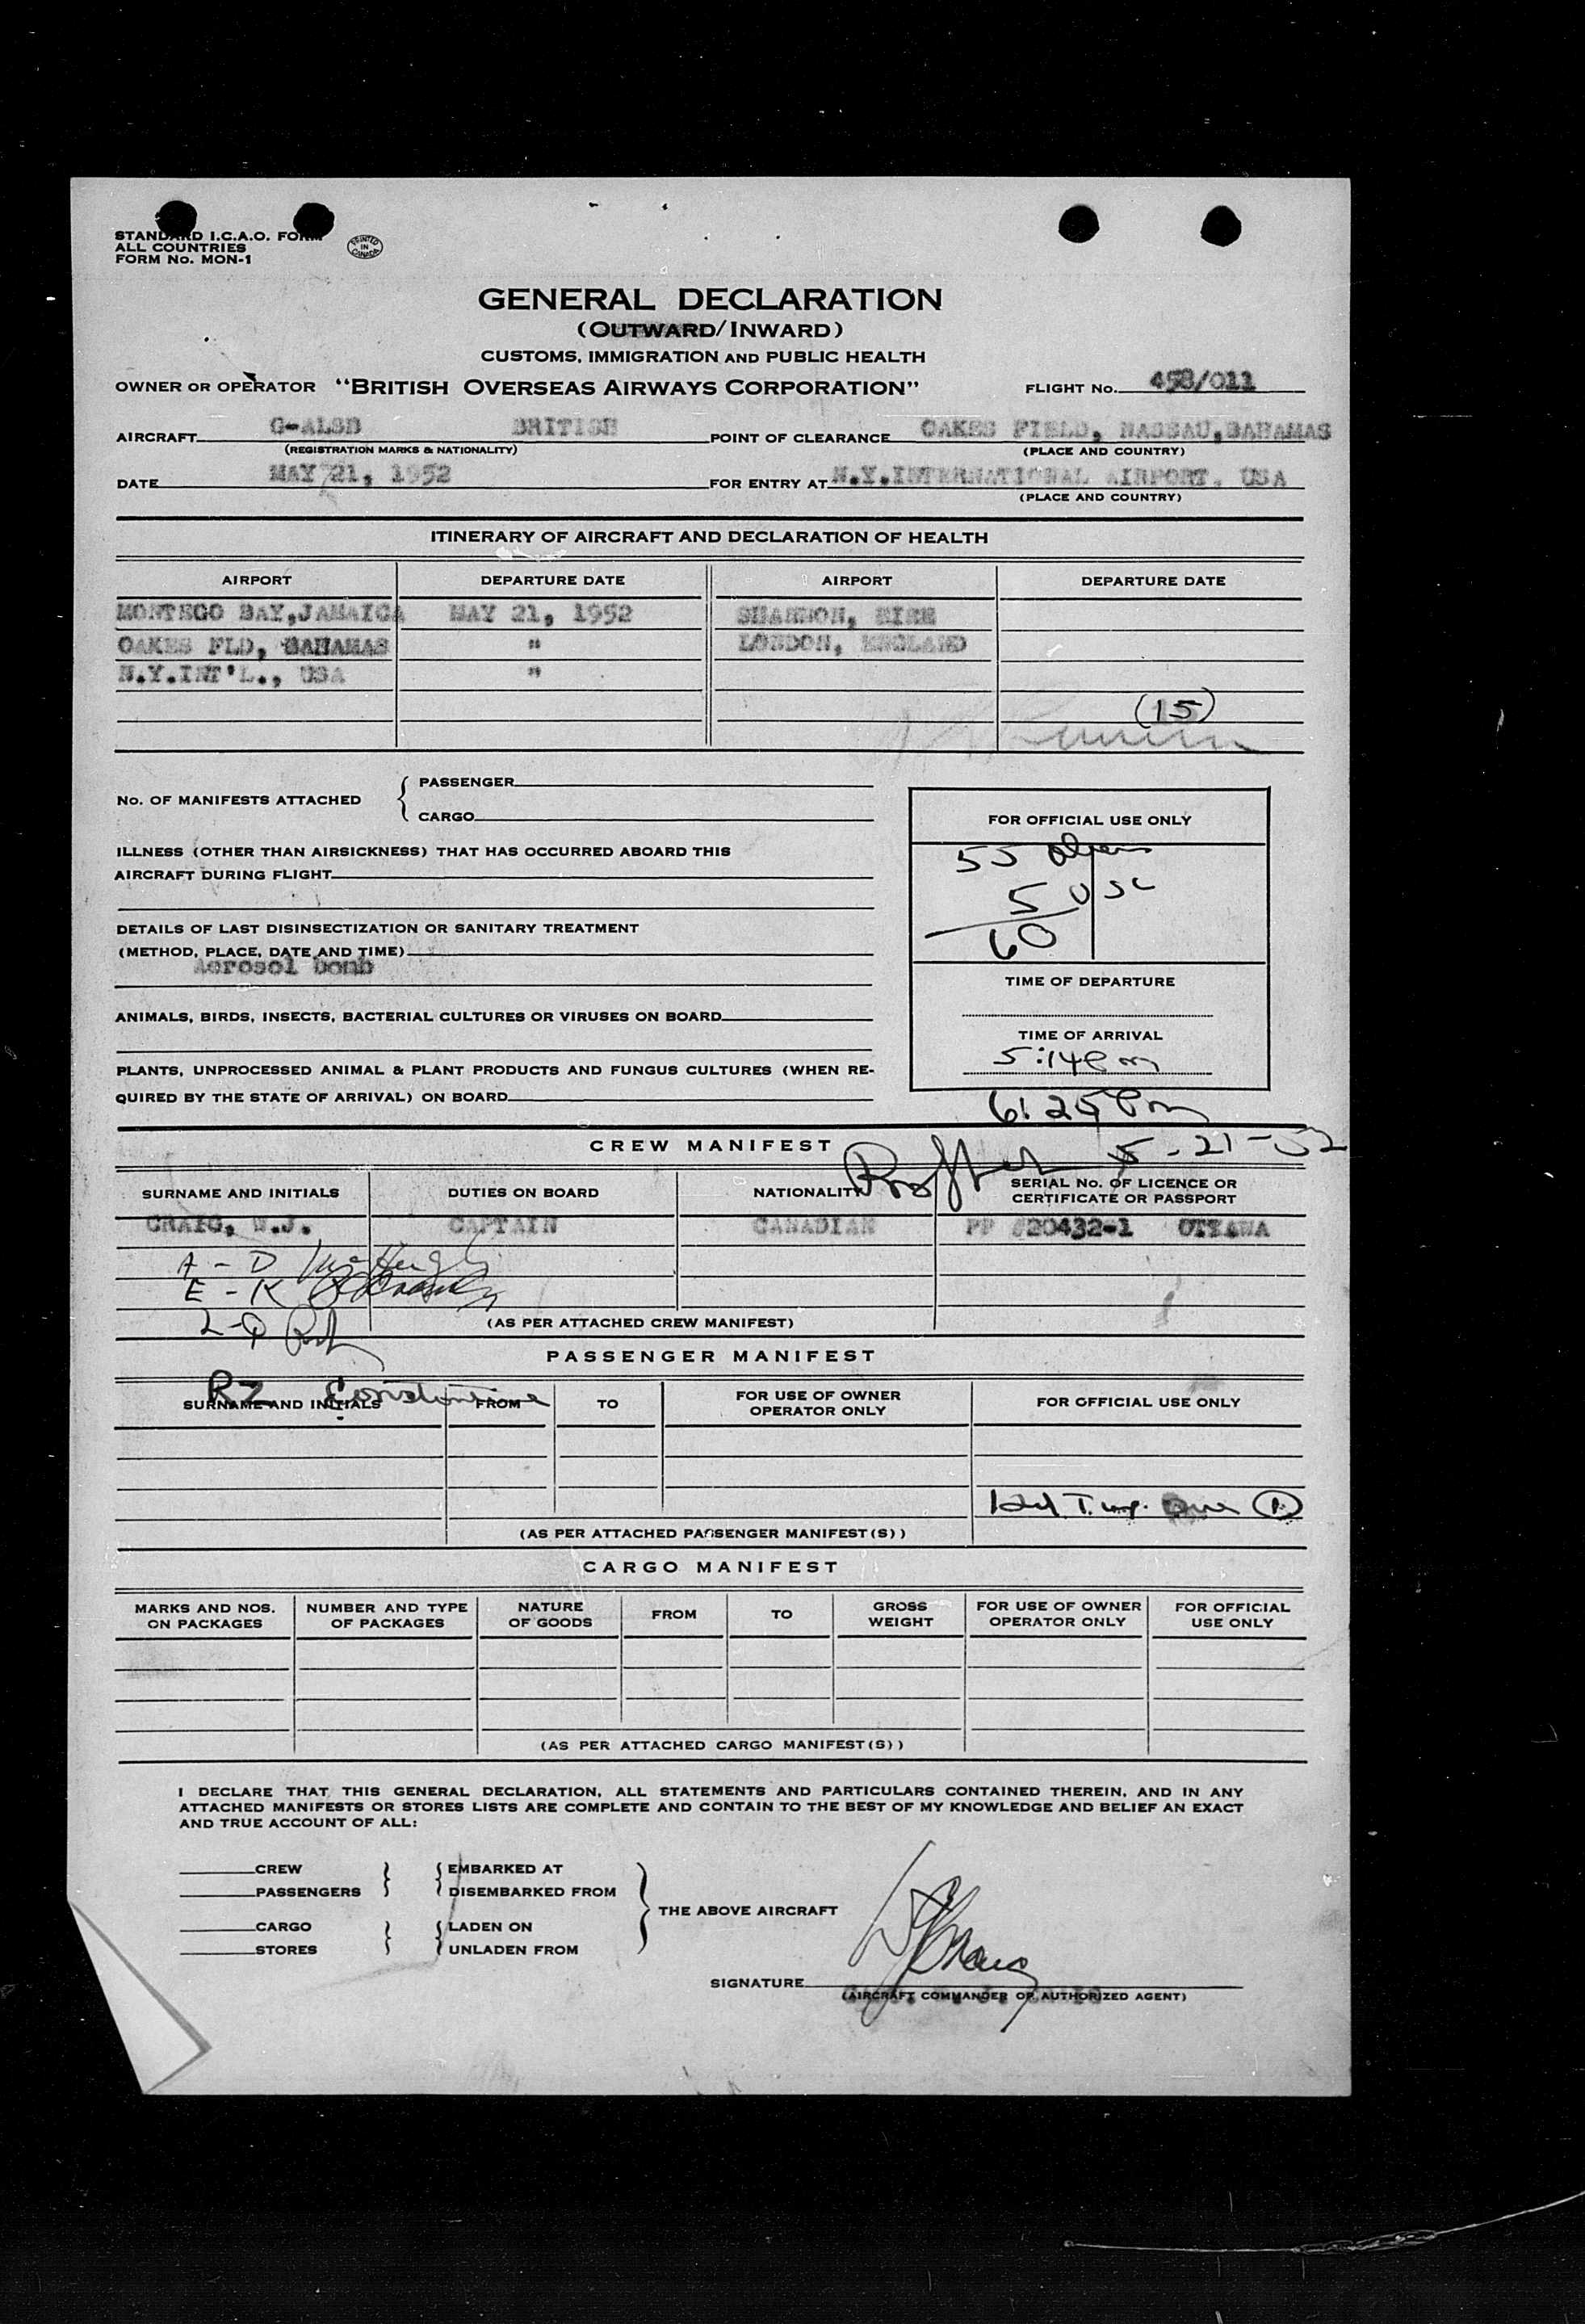 STANDARD I.C.A.O. FORM
ALL COUNTRIES
FORM No. MON-1
PRINTED IN CANADA
GENERAL DECLARATION
(OUTWARD/INWARD)
CUSTOMS, IMMIGRATION AND PUBLIC HEALTH
OWNER OR OPERATOR "BRITISH OVERSEAS AIRWAYS CORPORATION" FLIGHT No. 458/011
AIRCRAFT G-ALSB BRITISH POINT OF CLEARANCE OAKES FIELD, NASSAU, BAHAMAS
(REGISTRATION MARKS & NATIONALITY) (PLACE AND COUNTRY)
DATE MAY 21, 1952 FOR ENTRY AT N.Y.INTERNATIONAL AIRPORT, USA
(PLACE AND COUNTRY)
ITINERARY OF AIRCRAFT AND DECLARATION OF HEALTH
AIRPORT DEPARTURE DATE AIRPORT DEPARTURE DATE
MONTEGO BAY, JAMAICA MAY 21, 1952 SHANNON, EIRE
OAKES FLD, BAHAMAS " LONDON, ENGLAND
N.Y.INT'L., USA "
(15)
No. OF MANIFESTS ATTACHED { PASSENGER
CARGO
FOR OFFICIAL USE ONLY
ILLNESS (OTHER THAN AIRSICKNESS) THAT HAS OCCURRED ABOARD THIS
AIRCRAFT DURING FLIGHT
55 Aliens
5 USC
60
DETAILS OF LAST DISINSECTIZATION OR SANITARY TREATMENT
(METHOD, PLACE, DATE AND TIME)
Aerosol bomb
TIME OF DEPARTURE
ANIMALS, BIRDS, INSECTS, BACTERIAL CULTURES OR VIRUSES ON BOARD
TIME OF ARRIVAL
5:14 Pm
PLANTS, UNPROCESSED ANIMAL & PLANT PRODUCTS AND FUNGUS CULTURES (WHEN RE-
QUIRED BY THE STATE OF ARRIVAL) ON BOARD
6:25 Pm
CREW MANIFEST
5-21-52
SURNAME AND INITIALS DUTIES ON BOARD NATIONALITY SERIAL No. OF LICENCE OR
CERTIFICATE OR PASSPORT
CRAIG, W.J. CAPTAIN CANADIAN PP #20432-1 OTTAWA
A - D
E - K
L-Q
(AS PER ATTACHED CREW MANIFEST)
PASSENGER MANIFEST
RZ Constantine
SURNAME AND INITIALS FROM TO FOR USE OF OWNER
OPERATOR ONLY FOR OFFICIAL USE ONLY
(AS PER ATTACHED PASSENGER MANIFEST(S))
CARGO MANIFEST
MARKS AND NOS.
ON PACKAGES NUMBER AND TYPE
OF PACKAGES NATURE
OF GOODS FROM TO GROSS
WEIGHT FOR USE OF OWNER
OPERATOR ONLY FOR OFFICIAL
USE ONLY
(AS PER ATTACHED CARGO MANIFEST(S))
I DECLARE THAT THIS GENERAL DECLARATION, ALL STATEMENTS AND PARTICULARS CONTAINED THEREIN, AND IN ANY
ATTACHED MANIFESTS OR STORES LISTS ARE COMPLETE AND CONTAIN TO THE BEST OF MY KNOWLEDGE AND BELIEF AN EXACT
AND TRUE ACCOUNT OF ALL:
CREW EMBARKED AT
PASSENGERS DISEMBARKED FROM
THE ABOVE AIRCRAFT
CARGO LADEN ON
STORES UNLADEN FROM
SIGNATURE WJCraig
(AIRCRAFT COMMANDER OR AUTHORIZED AGENT)